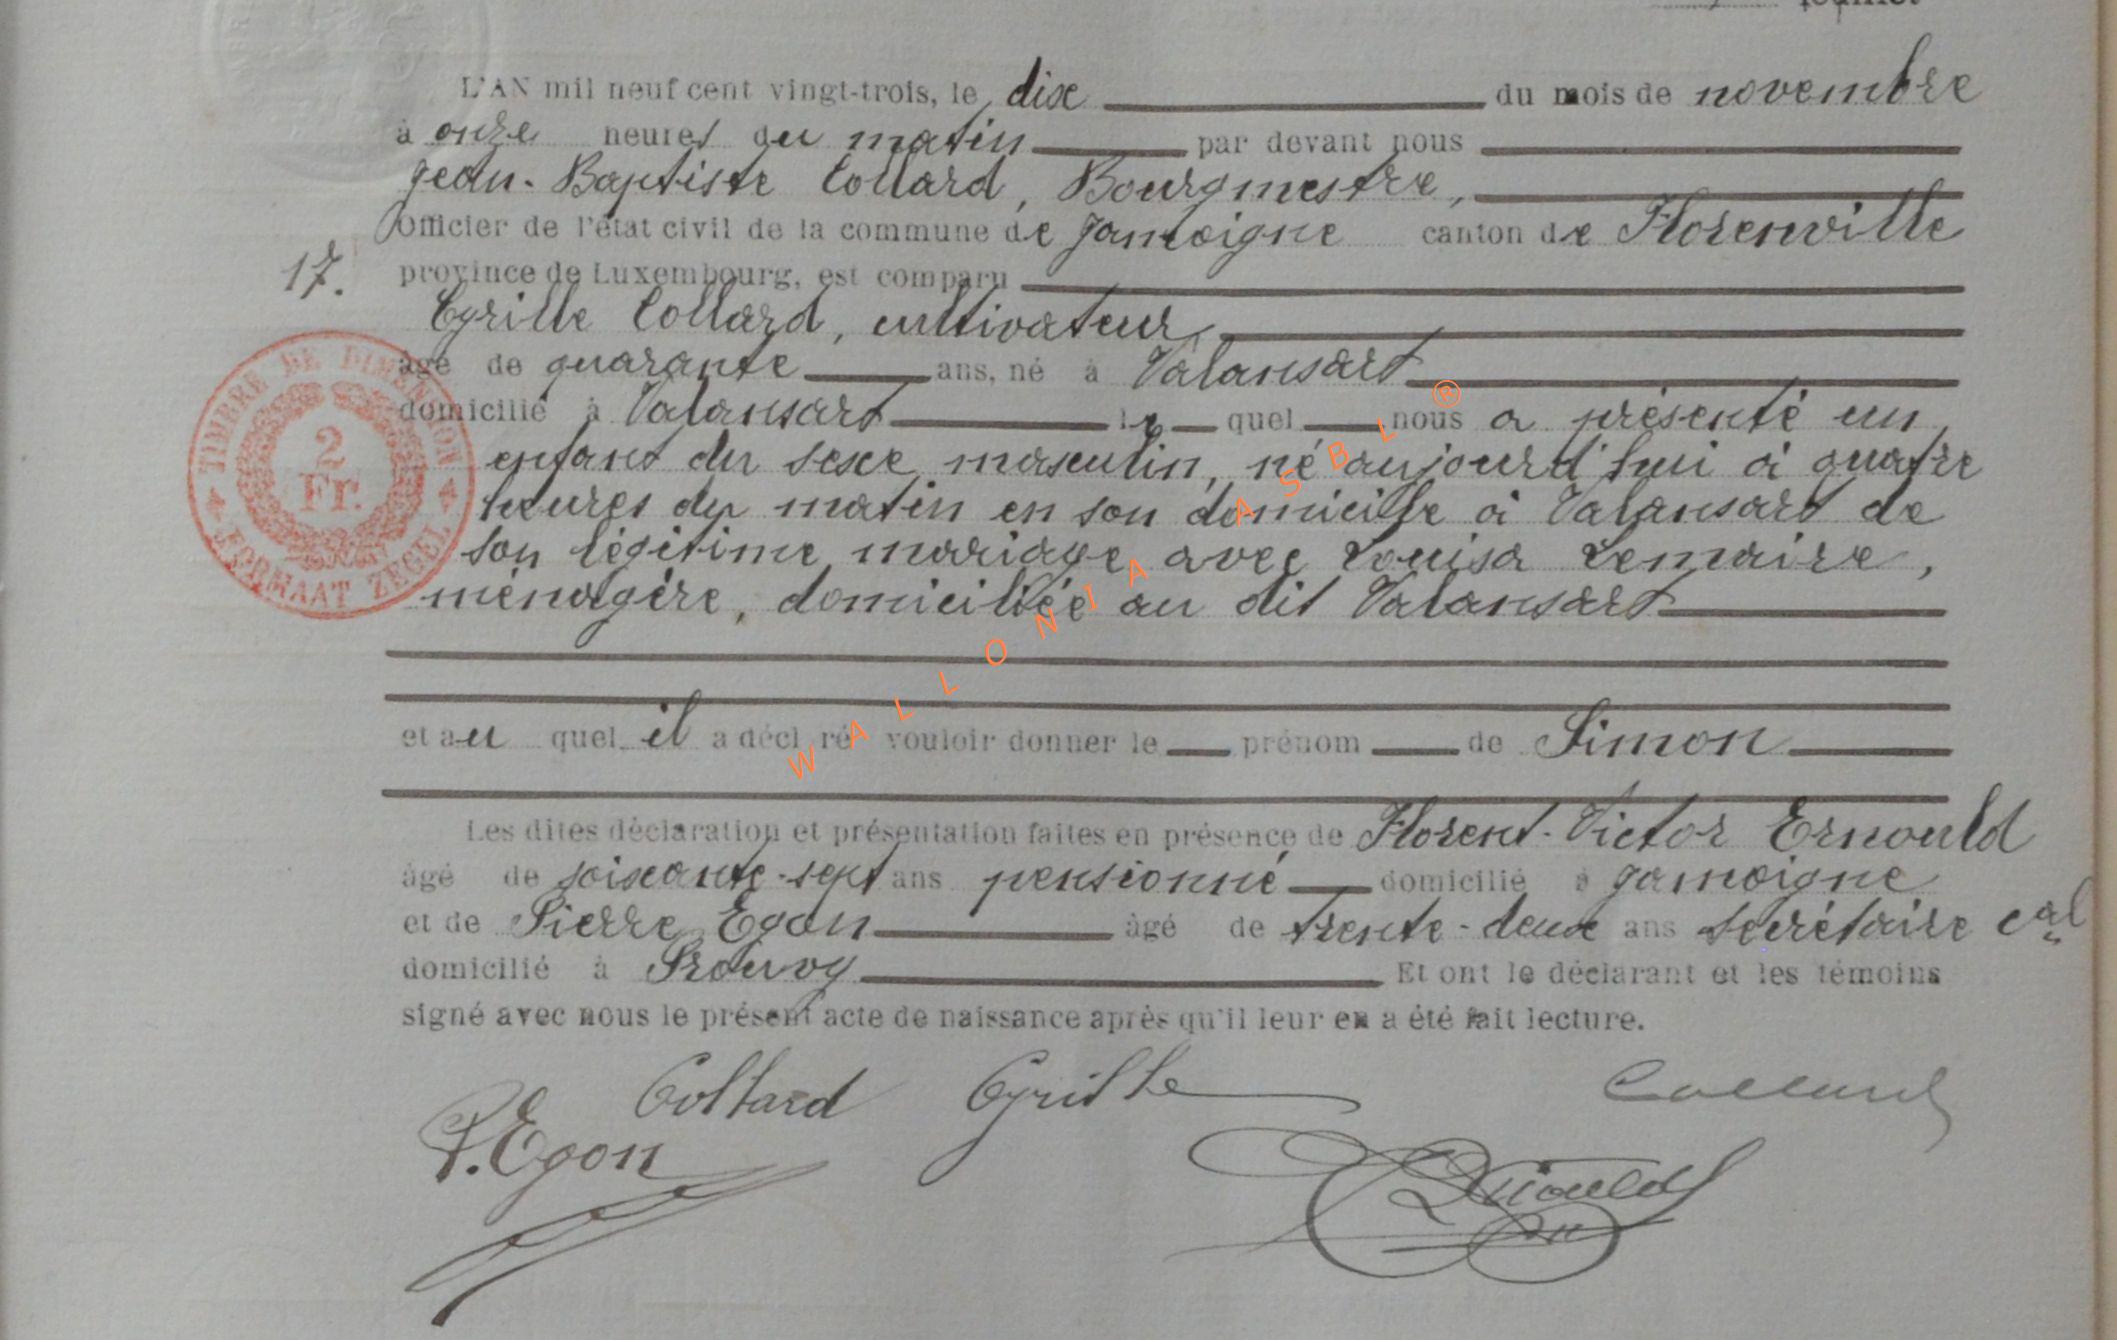 feuillet
L'AN mil neuf cent vingt-trois, le dix du mois de novembre
à onze heures du matin par devant nous
Jean-Baptiste Collard, Bourgmestre,
Officier de l'état civil de la commune de Jamoigne canton de Florenville
17.
province de Luxembourg, est comparu
Cyrille Collard, cultivateur,
âgé de quarante ans, né à Valansart
domicilié à Valansart lequel nous a présenté un
enfant du sexe masculin, né aujourd'hui à quatre
heures du matin en son domicile à Valansart de
son légitime mariage avec Louisa Lemaire,
ménagère, domiciliée au dit Valansart
TIMBRE DE DIMENSION
2
Fr.
FORMAAT ZEGEL
WALLONIA ASBL ®
et au quel il a déclaré vouloir donner le prénom de Simon
Les dites déclaration et présentation faites en présence de Florent-Victor Ernould
âgé de soixante-sept ans pensionné domicilié à Jamoigne
et de Pierre Egon âgé de trente-deux ans secrétaire cal
domicilié à Prouvy Et ont le déclarant et les témoins
signé avec nous le présent acte de naissance après qu'il leur en a été fait lecture.
Collard Cyrille Collard
P. Egon
Ernould